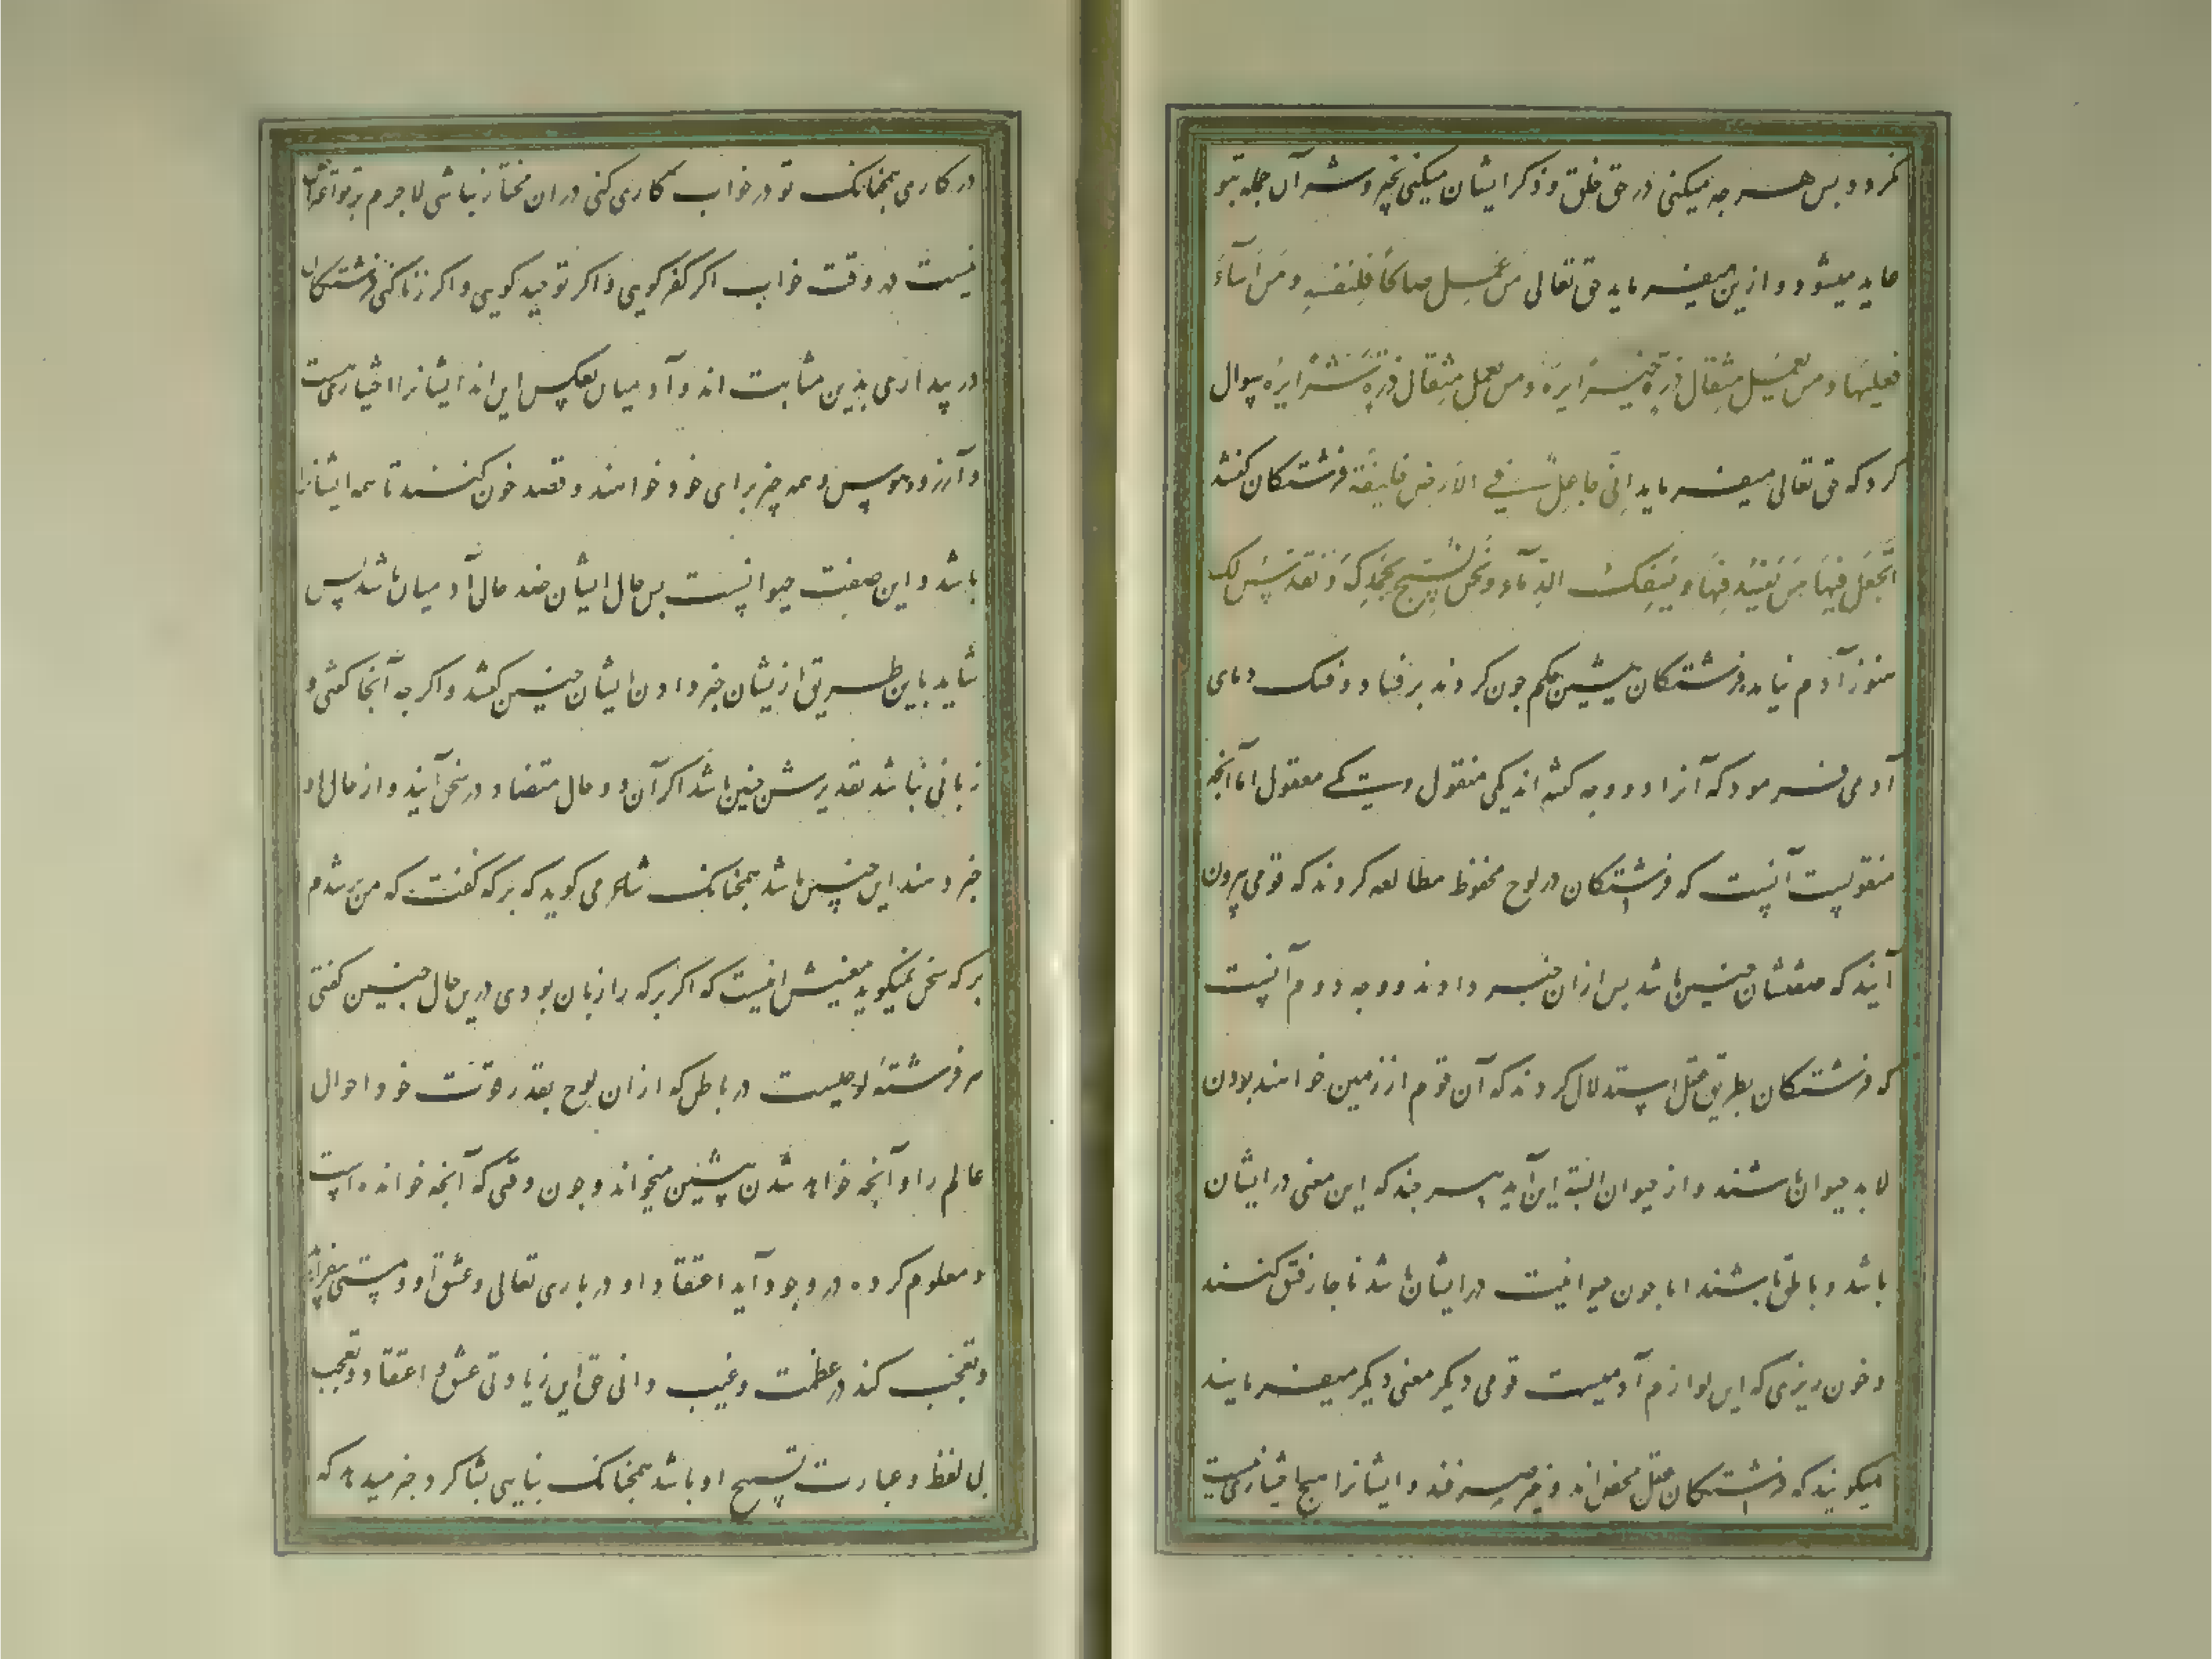 نکردد و بس هر جه میکنی در حق خلق و ذکر ایشان میکنی بخیر و شر آن جمله بتو
عاید میشود و ازین میفرماید حق تعالی مَن عَمِل صالحًا فَلِنَفسِهِ و مَن اَساءَ
فعلیها و من یعمل مثقال ذرةٍ خیرًا یره و من یعمل مثقال ذرةٍ شرًا یره سوال
کرد که حق تعالی میفرماید اِنّی جاعلٌ فی الارض خلیفة فرشتکان کفتند
اتجعل فیها من یفسد فیها و یسفک الدماء و نحن نسبح بحمدک و نقدس لک
هنوز آدم نیامده فرشتکان پیشین حکم جون کردند بر فساد و سفک دمای
آدمی فرمود که آنرا دو وجه کفته اند یکی منقول و یکی معقول اما آنجه
منقولست آنست که فرشتکان در لوح محفوظ مطالعه کردند که قومی بیرون
آیند که صفتشان جنین باشد بس از آن خبر دادند و وجه دوم آنست
که فرشتکان بطریق عقل استدلال کردند که آن قوم از زمین خواهند بودن
لابد حیوان باشند و از حیوان البته این آید هر جند که این معنی در ایشان
باشد و ناطق باشند اما جون حیوانیت در ایشان باشد ناجار فسق کنند
و خون ریزی که این لوازم آدمیست قومی دیکر معنی دیکر میفرمایند
میکویند که فرشتکان عقل محض اند و خیر صرفند و ایشانرا هیج اختیاری نیست
در کاری همجنانک تو در خواب کاری کنی در آن مختار نباشی لاجرم بر تو اعتراض
نیست در وقت خواب اکر کفر کویی و اکر توحید کویی و اکر زنا کنی فرشتکان
در بیداری بدین مثابت اند و آدمیان بعکس این اند ایشانرا اختیاری هست
و آرزو و هوس و همه چیز برای خود خواهند و قصد خون کنند تا همه ایشانرا
باشد و این صفت حیوانست بس حال ایشان ضد حال آدمیان باشد پس
شاید باین طریق ازیشان خبر دادن ایشان جنین کفتند و اکر جه آنجا کفتی و
زبانی نباشد تقدیرش جنین باشد اکر آن دو حال متضاد در سخن آیند و از حال خود
خبر دهند این جنین باشد همجنانک شاعر می کوید که برکه کفت که من پر شدم
برکه سخن نمیکوید معنیش اینست که اکر برکه را زبان بودی درین حال جنین کفتی
هر فرشتهٔ لوحیست در باطن که از آن لوح بقدر قوت خود احوال
عالم را و آنجه خواهد شدن پیشین میخواند و جون وقتی که آنجه خوانده است
و معلوم کرده در وجود آید اعتقاد او در باری تعالی و عشق او و مستی بیفزاید
و تعجب کند در عظمت و غیب دانی حق این زیادتی عشق و اعتقاد و تعجب
بی لفظ و عبارت تسبیح او باشد همجنانک بنایی بشاکرد خبر میدهد که